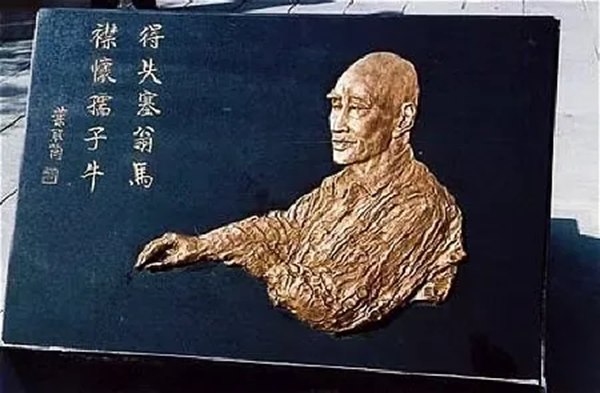 得失塞翁馬
襟懷孺子牛
葉